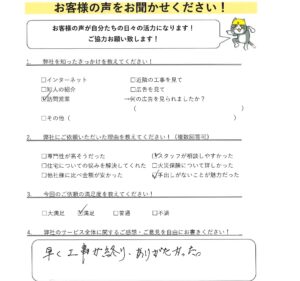 お客様の声をお聞かせください！
お客様の声が自分たちの日々の活力になります！
ご協力お願い致します！
1. 弊社を知ったきっかけを教えてください！
□インターネット □近隣の工事を見て
□知人の紹介 □広告を見て
☑訪問営業 →何の広告を見られましたか？
( )
□その他( )
2. 弊社にご依頼いただいた理由を教えてください！（複数回答可）
□専門性が高そうだった ☑スタッフが相談しやすかった
□住宅についての悩みを解決してくれた □火災保険について詳しかった
□他社様に比べ金額が安かった ☑手出しがないことが魅力だった
3. 今回のご依頼の満足度を教えてください！
□大満足 ☑満足 □普通 □不満
4. 弊社のサービス全体に関するご感想・ご意見を自由にお書きください！
早く工事が終り、ありがたかった。